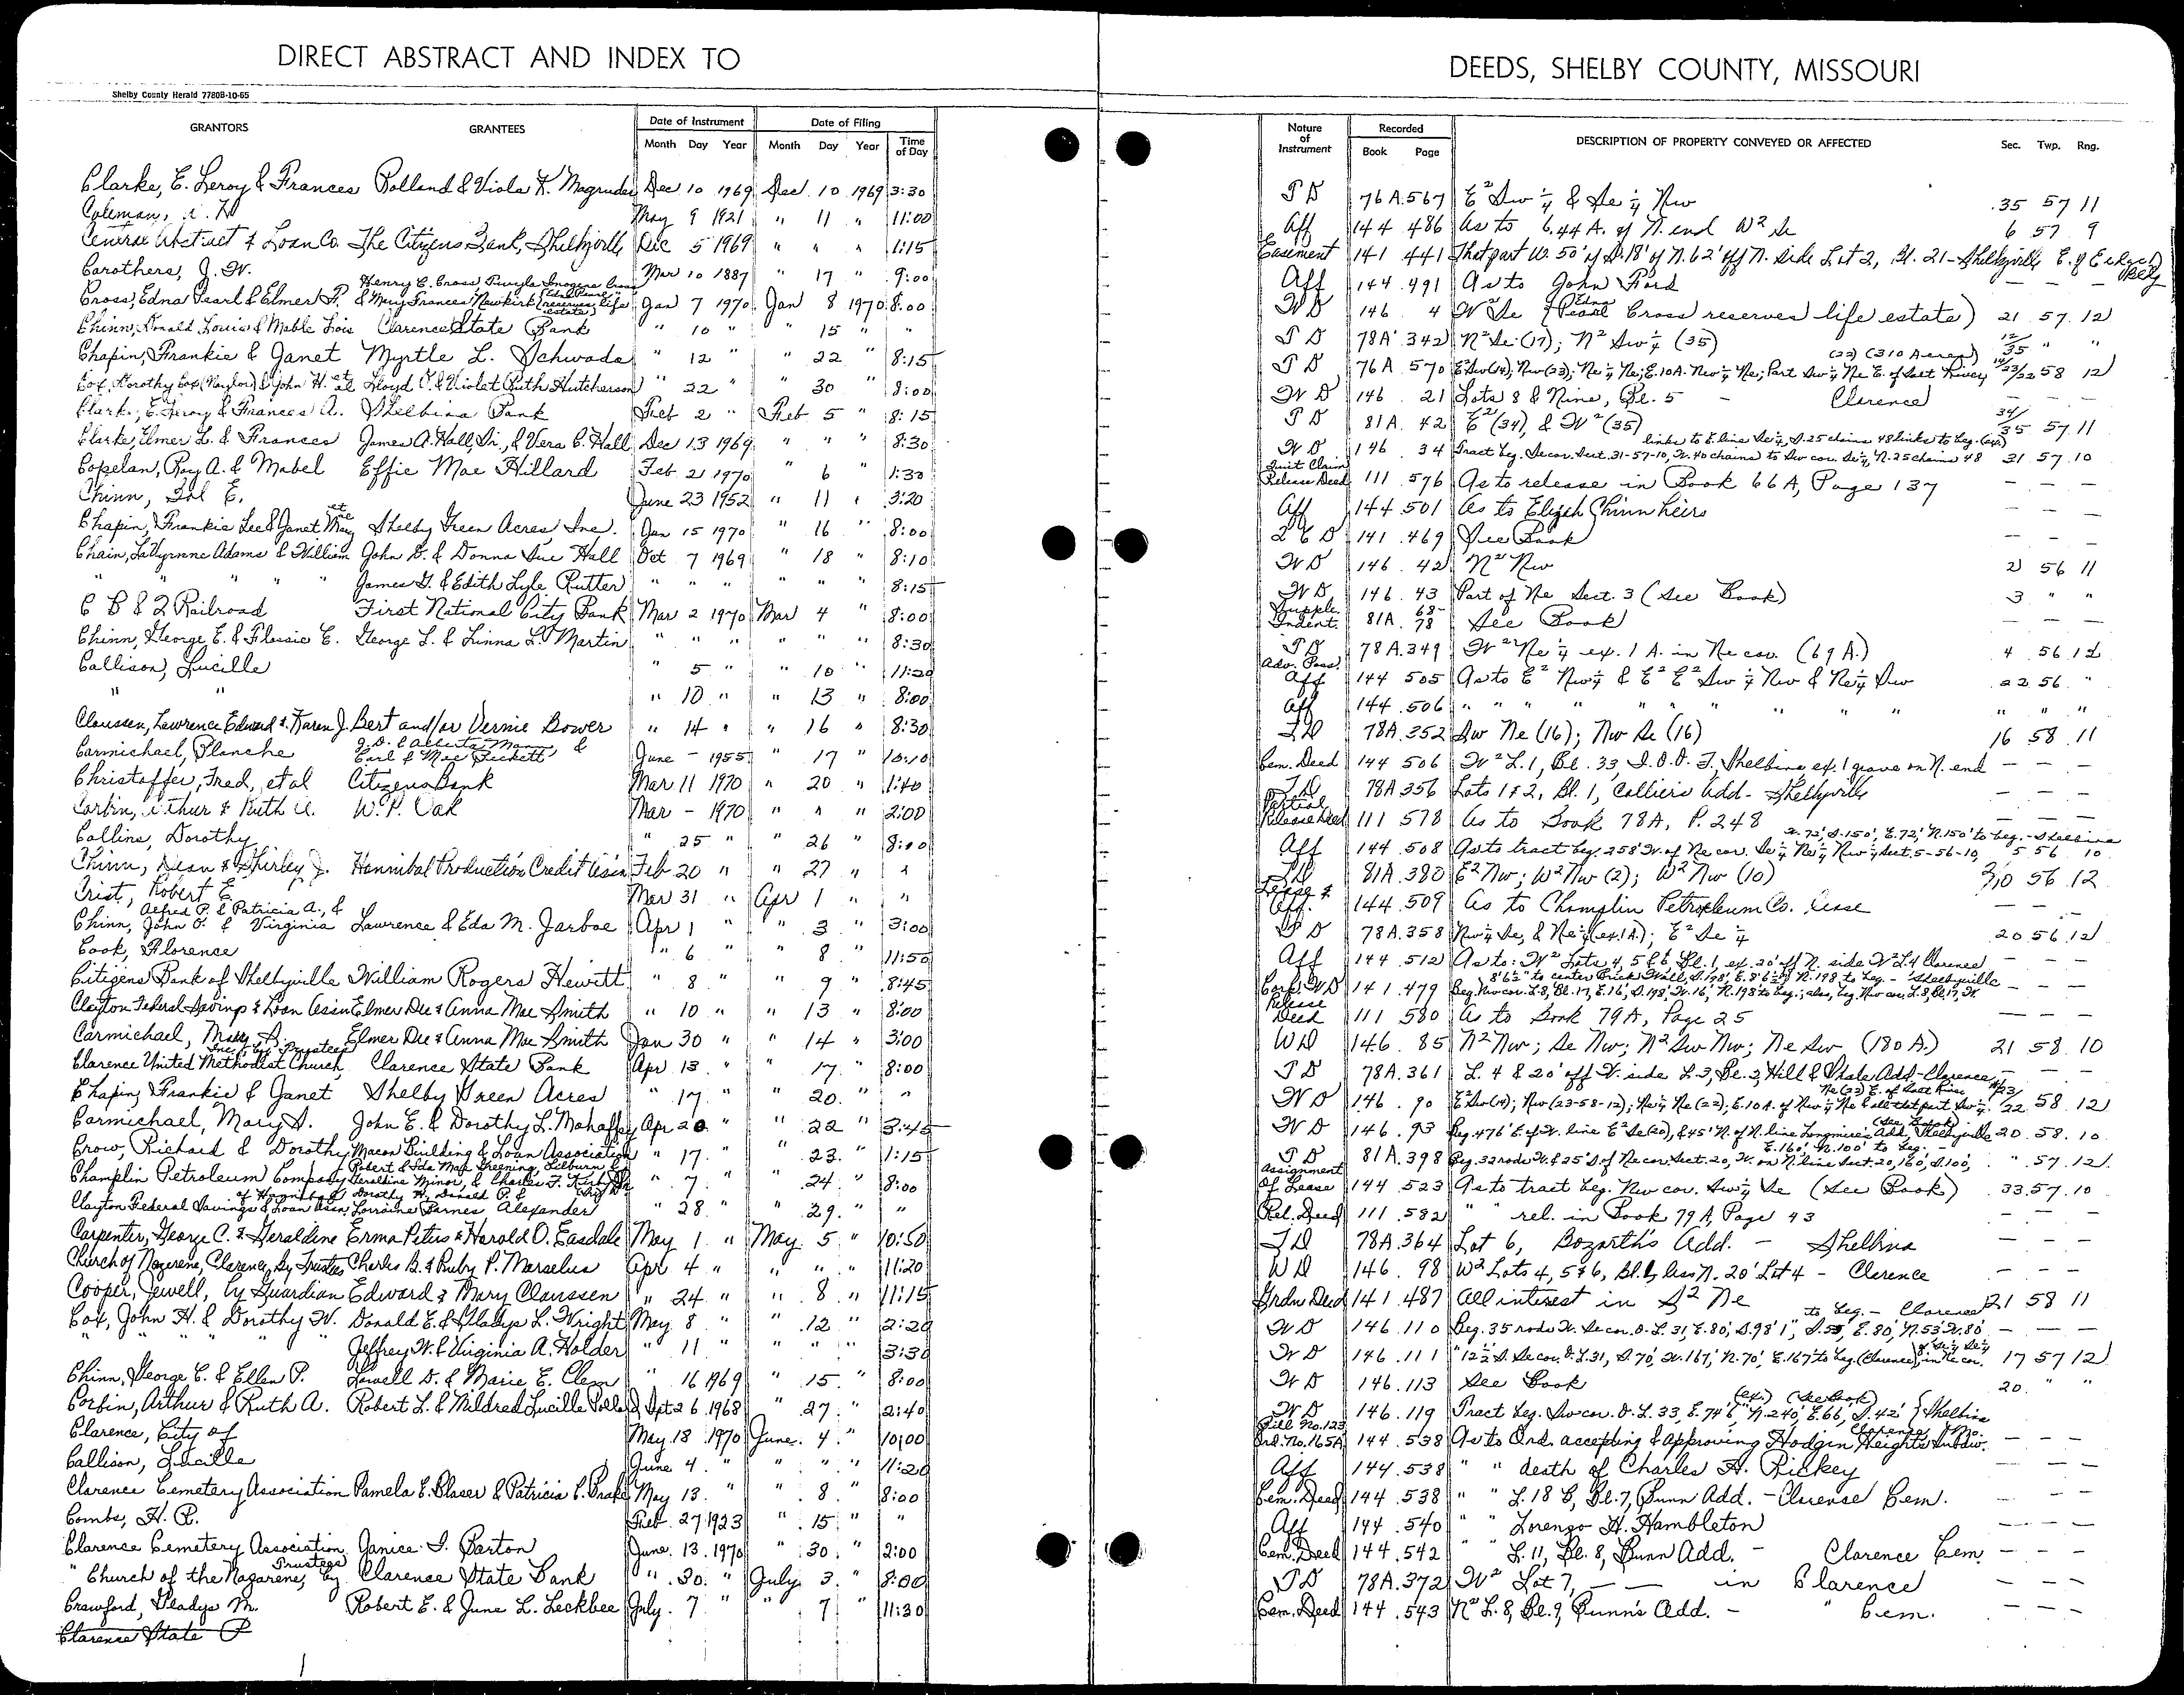 DIRECT ABSTRACT AND INDEX TO
Shelby County Herald 7780B-10-65
GRANTORS GRANTEES Date of Instrument Date of Filing
Month Day Year Month Day Year Time of Day
Clarke, E. Leroy & Frances Rolland & Viola K. Magruder Dec 10 1969 Dec 10 1969 3:30
Coleman, May 9 1921 " 11 " 11:00
Central Abstract & Loan Co. The Citizens Bank, Shelbyville Dec 5 1969 " " " 1:15
Carothers, J. W. Mar 10 1887 " 17 " 9:00
Henry C. Cross, Twyla Imogene Cross
Cross, Edna Pearl & Elmer P. & Mary Frances Newkirk (Edna Pearl reserves life estate) Jan 7 1970 Jan 8 1970 8:00
Chinn, Donald Louis & Mable Lois Clarence State Bank " 10 " " 15 " "
Chapin, Frankie & Janet Myrtle L. Schwada " 12 " " 22 " 8:15
Cox, Dorothy Cox (Naylor) & John H. et al Lloyd O. & Violet Ruth Hutcherson " 22 " " 30 " 8:00
Clark, E. Leroy & Frances A. Shelbina Bank Feb 2 " Feb 5 " 8:15
Clarke, Elmer L. & Frances James A. Hall, Sr., & Vera C. Hall Dec 13 1969 " " " 8:30
Copelan, Roy A. & Mabel Effie Mae Hillard Feb 2 1970 " 6 " 1:30
Chinn, E. June 23 1952 " 11 " 3:20
Chapin, Frankie Lee & Janet May Shelby Green Acres Inc. Jan 15 1970 " 16 " 8:00
Chain, LaVyrnne Adams & William John D. & Donna Sue Hall Oct 7 1969 " 18 " 8:10
" " " " James G. & Edith Lyle Rutter " " " " " " 8:15
C B & Q Railroad First National City Bank Mar 2 1970 Mar 4 " 8:00
Chinn, George E. & Flossie E. George L. & Linna L. Martin " " " " " " 8:30
Callison, Lucille " 5 " " 10 " 11:20
" " " 10 " " 13 " 8:00
Claussen, Lawrence Edward & Karen J. Bert and/or Vernie Bower " 14 " " 16 " 8:30
Carmichael, Blanche J. D. & Alberta & Earl & Mae Pickett June - 1955 " 17 " 10:10
Christoffer, Fred, et al Citizens Bank Mar 11 1970 " 20 " 1:40
Corbin, Arthur & Ruth A. W. P. Oak Mar - 1970 " " " 2:00
Collins, Dorothy " 25 " " 26 " 8:00
Chinn, Dean & Shirley J. Hannibal Production Credit Ass'n Feb 20 " " 27 " "
Crist, Robert E. Mar 31 " Apr 1 " "
Alfred P. & Patricia A., &
Chinn, John O. & Virginia Lawrence & Eda M. Jarboe Apr 1 " " 3 " 3:00
Cook, Florence " 6 " " 8 " 11:50
Citizens Bank of Shelbyville William Rogers Hewitt " 8 " " 9 " 8:45
Clayton Federal Savings & Loan Assn Elmer Dee & Anna Mae Smith " 10 " " 13 " 8:00
Carmichael, Mary S. Elmer Dee & Anna Mae Smith Jan 30 " " 14 " 3:00
Inc., by Trustees
Clarence United Methodist Church, Clarence State Bank Apr 13 " " 17 " 8:00
Chapin, Frankie & Janet Shelby Green Acres " 17 " " 20 " "
Carmichael, Mary S. John E. & Dorothy L. Mahaffey Apr 20 " " 22 " 3:45
Crow, Richard & Dorothy Macon Building & Loan Association " 17 " " 23 " 1:15
Robert & Ida Mae Greening, Lilburn &
Champlin Petroleum Company Geraldine Minor, & Charles F. " 7 " " 24 " 8:00
of Hannibal Dorothy H. Donald P. &
Clayton Federal Savings & Loan Assn Lorraine Barnes Alexander " 28 " " 29 " "
Carpenter, George C. & Geraldine Erma Peters & Harold O. Easdale May 1 " May 5 " 10:50
Church of Nazarene, Clarence, by Trustees Charles B. & Ruby P. Marselus Apr 4 " " " " 11:20
Cooper, Jewell, by Guardian Edward & Mary Claussen " 24 " " 8 " 11:15
Cox, John H. & Dorothy W. Donald E. & Gladys L. Wright May 8 " " 12 " 2:20
" " " " " Jeffrey W. & Virginia A. Holder " 11 " " " " 3:30
Chinn, George E. & Ellen P. Lowell D. & Marie E. Clem " 16 1969 " 15 " 8:00
Corbin, Arthur & Ruth A. Robert L. & Mildred Lucille Pollard Sept 26 1968 " 27 " 2:40
Clarence, City of May 18 1970 June 4 " 10:00
Callison, Lucille June 4 " " " " 11:20
Clarence Cemetery Association Pamela E. Blaser & Patricia C. Drake May 13 " " 8 " 8:00
Combs, H. P. Feb 27 1923 " 15 " "
Clarence Cemetery Association Janice I. Barton June 13 1970 " 30 " 2:00
" Church of the Nazarene, by Trustees Clarence State Bank " 30 " July 3 " 8:00
Crawford, Gladys M. Robert E. & June L. Leckbee July 7 " " 7 " 11:30
Clarence State B
DEEDS, SHELBY COUNTY, MISSOURI
Nature of Instrument Recorded DESCRIPTION OF PROPERTY CONVEYED OR AFFECTED Sec. Twp. Rng.
Book Page
T D 76A 567 E² Sw ¼ & Se ¼ Nw 35 57 11
Aff 144 486 As to 6.44 A. of N. end W² Se 6 57 9
Easement 141 441 That part W. 50' of S. 18' of N. 62' off N. side Lot 2, Bl. 21 - Shelbyville
Aff 144 491 As to John Ford - - -
W D 146 4 W² Se (Edna Pearl Cross reserves life estate) 21 57 12
T D 78A 342 N² Se (17); N² Sw ¼ (35) 12/35 " "
(22) (310 Acres)
T D 76A 570 E² Sw (14); Nw (23); Ne ¼ Ne; E. 10A. Nw ¼ Ne; Part Sw ¼ Ne E. of Salt River 14/23/22 58 12
W D 146 21 Lots 8 & Nine, Bl. 5 - Clarence - - -
T D 81A 42 E² (34), & W² (35) 34/35 57 11
links to E. line Se ¼, S. 25 chains 48 links to beg. (ex.)
W D 146 34 Tract beg. Se cor. Sect. 31-57-10, W. 40 chains to Sw cor. Se ¼, N. 25 chains 48 31 57 10
Quit Claim Release Deed 111 576 As to release in Book 66A, Page 137 - - -
Aff 144 501 As to Elijah Chinn heirs - - -
Q C D 141 469 See Book - - -
W D 146 42 N² Nw 2 56 11
W D 146 43 Part of Ne Sect. 3 (See Book) 3 " "
Supple. Indent. 81A 68-78 See Book - - -
T D 78A 349 W² Ne ¼ ex. 1 A. in Ne cor. (69 A.) 4 56 12
Adv. Poss. Aff 144 505 As to E² Nw ¼ & E² E² Sw ¼ Nw & Ne ¼ Sw 22 56 "
Aff 144 506 " " " " " " " " " "
T D 78A 352 Sw Ne (16); Nw Se (16) 16 58 11
Cem. Deed 144 506 W² L. 1, Bl. 33, I.O.O.F., Shelbina ex. 1 grave on N. end - - -
T D 78A 356 Lots 1 & 2, Bl. 1, Collier's Add - Shelbyville - - -
Partial Release Deed 111 578 As to Book 78A, P. 248 - - -
W. 72', S. 150', E. 72', N. 150' to beg. - Shelbina
Aff 144 508 As to tract beg. 258' W. of Ne cor. Se ¼ Ne ¼ Nw ¼ Sect. 5-56-10, 5 56 10
T D 81A 380 E² Nw; W² Nw (2); W² Nw (10) 2/10 56 12
Lease & Aff. 144 509 As to Champlin Petroleum Co. lease - - -
T D 78A 358 Nw ¼ Se, & Ne ¼ (ex. 1A.); E² Se ¼ 20 56 12
Aff 144 512 As to: W² Lots 4, 5 & 6 Bl. 1, ex. 20' off N. side W² L. 4 Clarence - - -
8'6½" to center Brick Wall, S. 198', E. 8'6½", N. 198 to beg. - Shelbyville
Corp. W D 141 479 Beg. Nw cor. L. 8, Bl. 17, E. 16', S. 198', W. 16', N. 198' to beg.; also, beg. Nw cor. L. 8, Bl. 17, W. - - -
Release Deed 111 580 As to Book 79A, Page 25 - - -
W D 146 85 N² Nw; Se Nw; N² Sw Nw; Ne Sw (180 A.) 21 58 10
T D 78A 361 L. 4 & 20' off W. side L. 3, Bl. 2, Hill & Add - Clarence - - -
Ne (22) E. of Salt River
W D 146 90 E² Sw (14); Nw (23-58-12); Ne ¼ Ne (22); E. 10 A. of Nw ¼ Ne & all that part Sw ¼ 22 58 12
(See Book)
W D 146 93 Beg. 476' E. of W. line E² Se (20), & 45' N. of N. line Longmire's Add, Shelbyville 20 58 10
E. 160', N. 100' to beg.
T D 81A 398 Beg. 32 rods W. & 25' S. of Ne cor. Sect. 20, W. on N. line Sect. 20, 160', S. 100', " 57 12
Assignment Of Lease 144 523 As to tract beg. Nw cor. Sw ¼ Se (See Book) 33 57 10
Rel. Deed 111 582 " " rel. in Book 79A, Page 43 - - -
T D 78A 364 Lot 6, Bozarth's Add. - Shelbina - - -
W D 146 98 W² Lots 4, 5 & 6, Bl. 1, less N. 20' Lot 4 - Clarence - - -
Grdn Deed 141 487 All interest in S² Ne 21 58 11
to beg. - Clarence
W D 146 110 Beg. 35 rods W. Se cor. O. L. 31, E. 80', S. 98' 1", S. 55', E. 80', N. 53' W. 80' - - -
W D 146 111 " 12½ S. Se cor. O. L. 31, S. 70', W. 167', N. 70', E. 167' to beg. (Clarence) in Ne cor. 17 57 12
W D 146 113 See Book 20 " "
(ex.) (See Book)
W D 146 119 Tract beg. Sw cor. O. L. 33, E. 74'6", N. 240', E. 66', S. 42' Shelbina
Bill No. 123 Ord. No. 165A 144 538 As to Ord. accepting & approving Hodgin Heights Subdiv. Clarence, Mo. - - -
Aff 144 538 " " death of Charles H. Rickey - - -
Cem. Deed 144 538 " " L. 18 B, Bl. 7, Bunn Add. - Clarence Cem. - - -
Aff 144 540 " " Lorenzo H. Hambleton - - -
Cem. Deed 144 542 " " L. 11, Bl. 8, Bunn Add. - Clarence Cem. - - -
T D 78A 372 W² Lot 7, - - in Clarence - - -
Cem. Deed 144 543 N² L. 8, Bl. 9, Bunn's Add. - " Cem. - - -